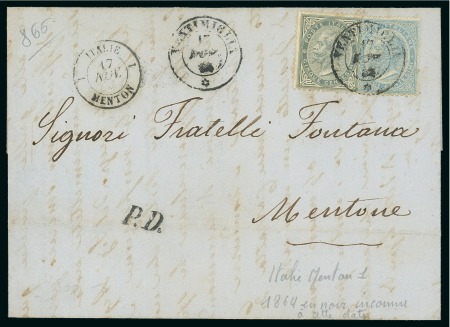 866
ITALIE
1 1
17
AVR.
MENTON
VENTIMIGLIA
17
64
VENTIMIGLIA
17
64
Signori Fratelli Fontana
Mentone
P.D.
Italie Menton 1
1864 en noir inconnu
à cette date